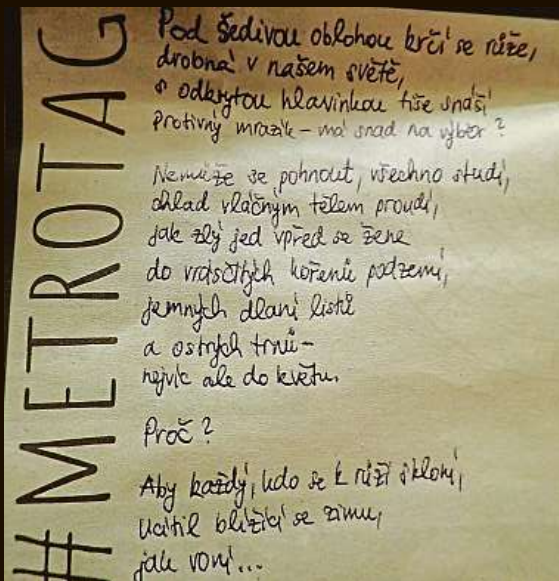 #METROTAG
Pod šedivou oblohou krčí se růže,
drobná v našem světě,
s odkrytou hlavinkou tiše snáší
Protivný mrazík – má snad na výběr?
Nemůže se pohnout, všechno studí,
chlad vláčným tělem proudí,
jak zlý jed vpřed se žene
do vrásčitých kořenů podzemí,
jemných dlaní listů
a ostrých trnů –
nejvíc ale do květu.
Proč?
Aby každý, kdo se k růži skloní,
Ucítil blížící se zimu,
jak voní...